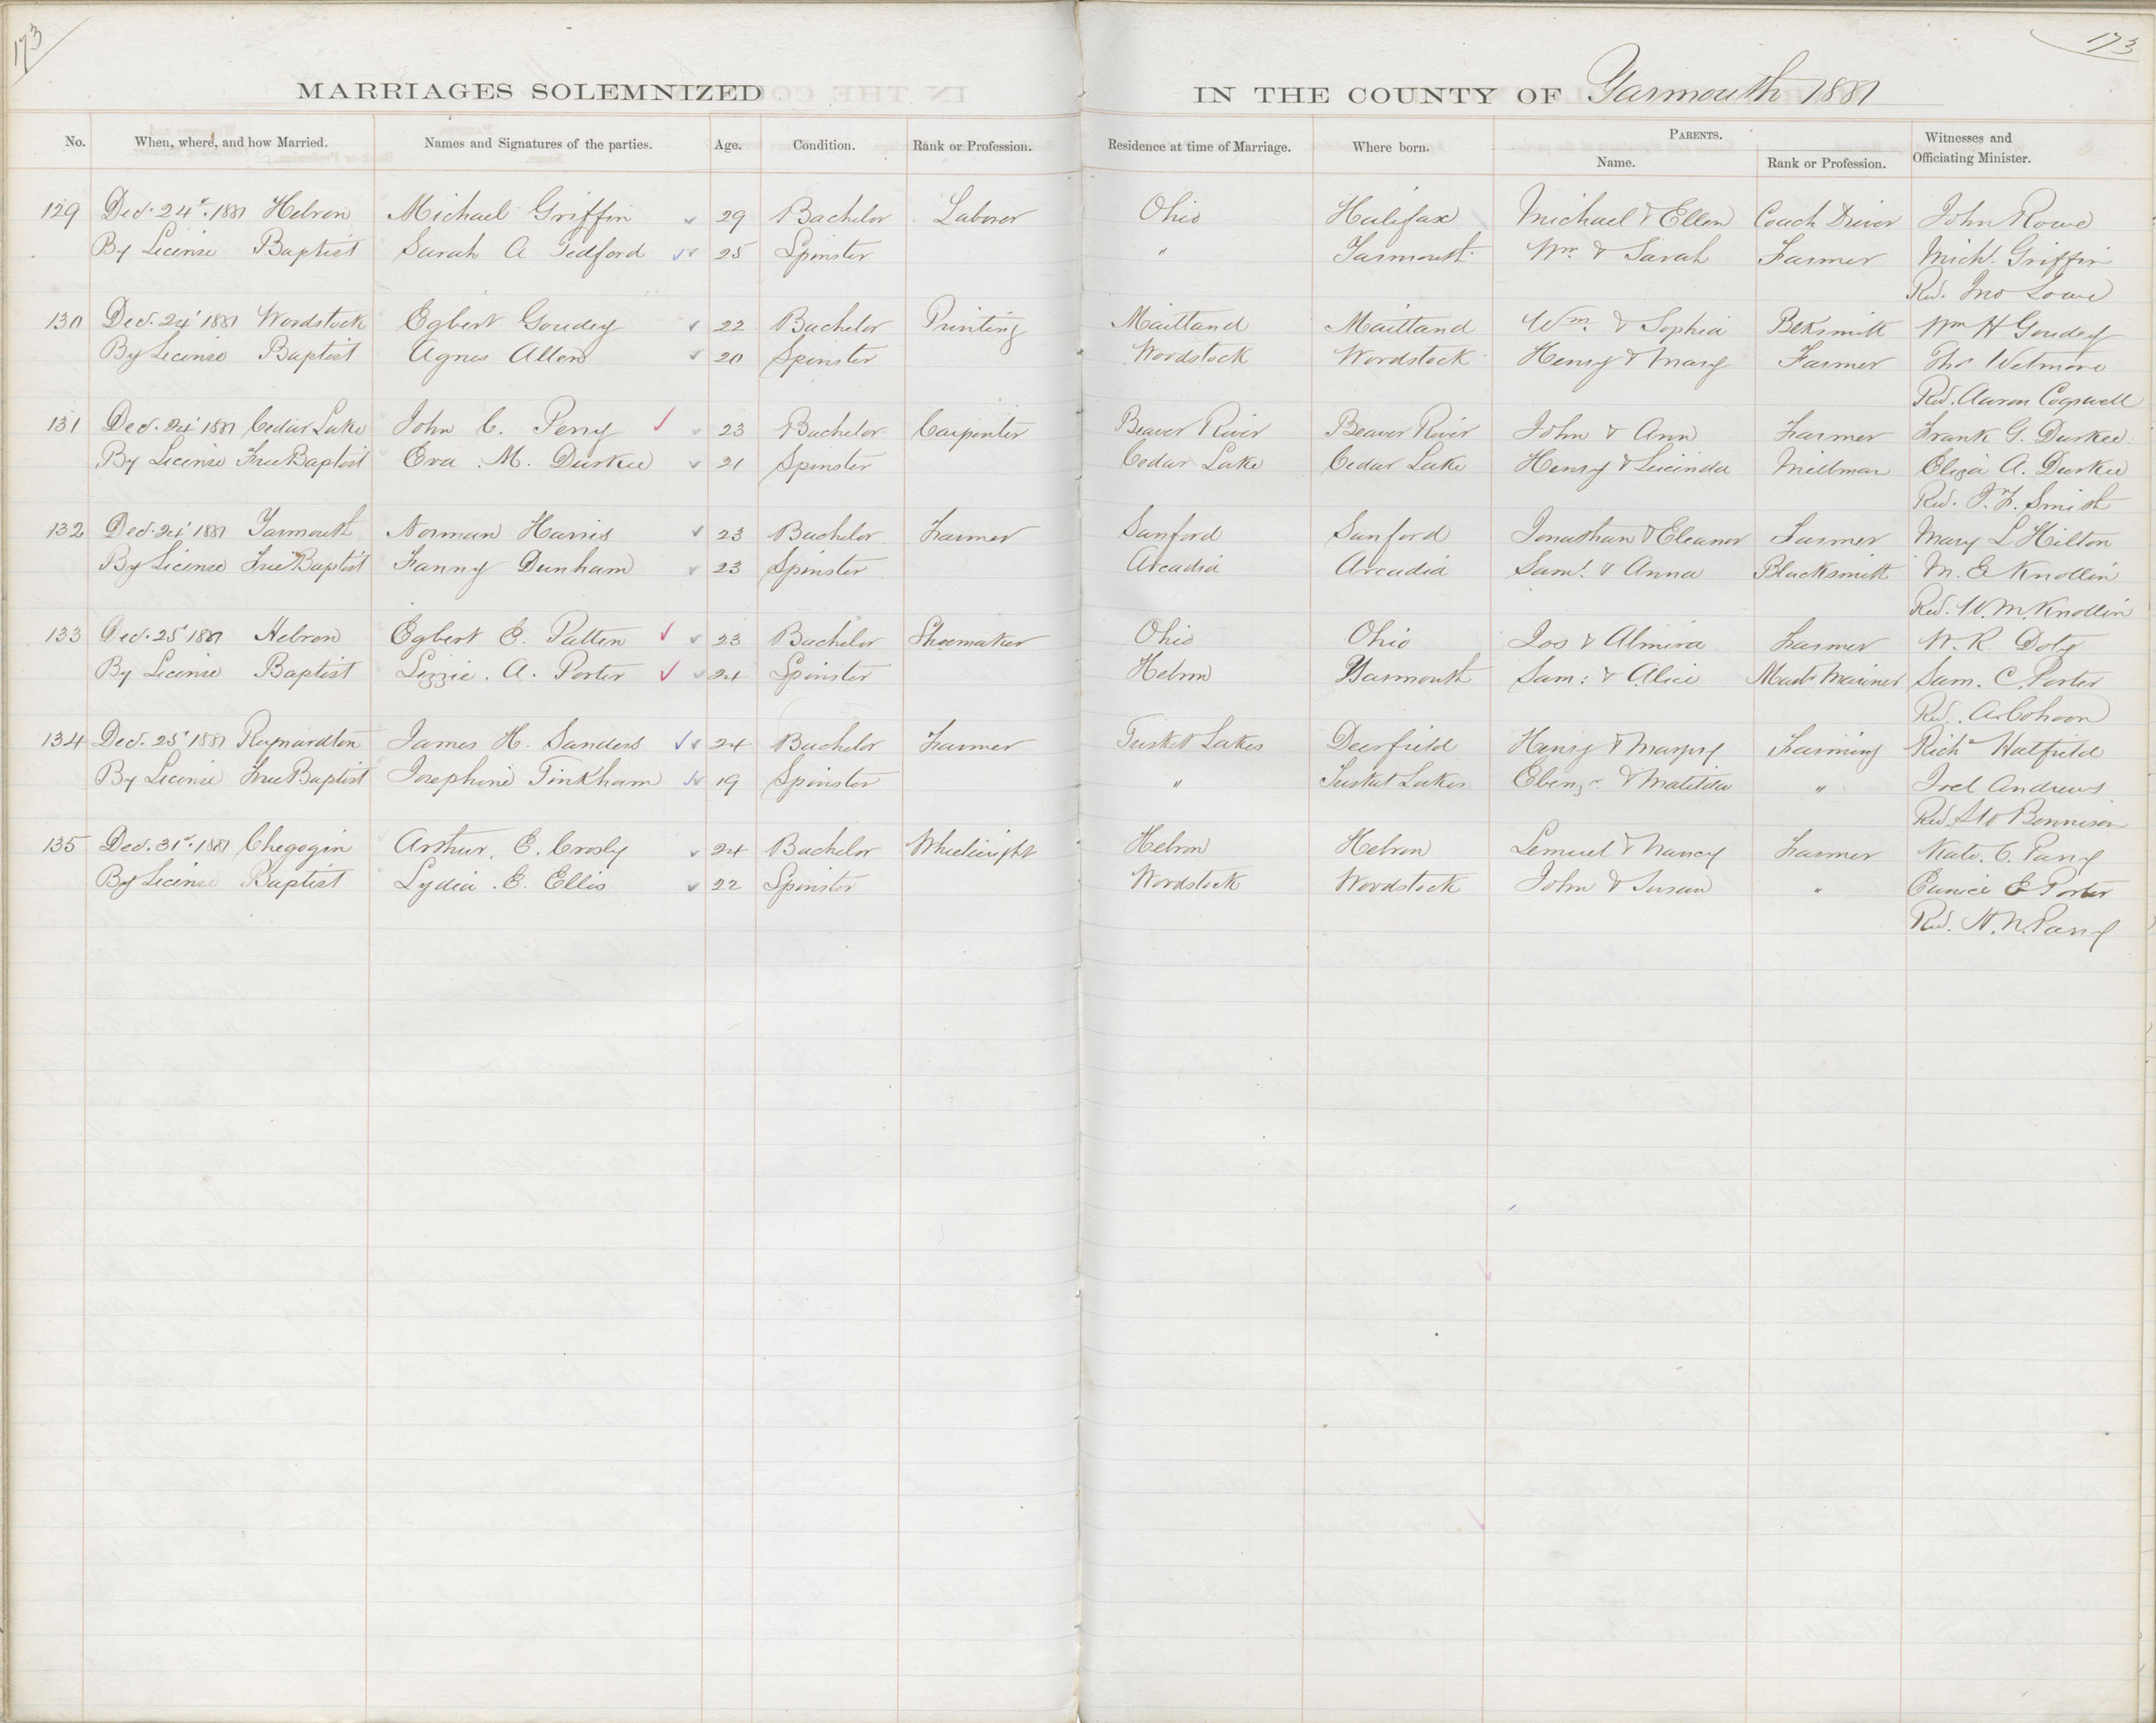 173
173
MARRIAGES SOLEMNIZED IN THE COUNTY OF Yarmouth 1881
No. When, where, and how Married. Names and Signatures of the parties. Age. Condition. Rank or Profession. Residence at time of Marriage. Where born. PARENTS. Name. Rank or Profession. Witnesses and Officiating Minister.
129 Dec. 24 1881 Hebron Michael Griffin 29 Bachelor Laborer Ohio Halifax Michael & Ellen Coach Driver John Rowe
By License Baptist Sarah A Tedford 25 Spinster " Yarmouth Wm. & Sarah Farmer Michl. Griffin
Rev. Jno Lowe
130 Dec. 24 1881 Woodstock Egbert Goudey 22 Bachelor Printing Maitland Maitland Wm. & Sophia Blksmith Wm H Goudey
By License Baptist Agnes Allen 20 Spinster Woodstock Woodstock Henry & Mary Farmer Thos Wetmore
Rev. Aaron Cogswell
131 Dec. 24 1881 Cedar Lake John C. Perry 23 Bachelor Carpenter Beaver River Beaver River John & Ann Farmer Frank G. Durkee
By License Free Baptist Eva M. Durkee 21 Spinster Cedar Lake Cedar Lake Henry & Lucinda Millman Eliza A. Durkee
Rev. T. F. Smith
132 Dec. 24 1881 Yarmouth Norman Harris 23 Bachelor Farmer Sanford Sanford Jonathan & Eleanor Farmer Mary L Hilton
By License Free Baptist Fanny Dunham 23 Spinster Arcadia Arcadia Saml. & Anna Blacksmith M. E Knollin
Rev. W. M. Knollin
133 Dec. 25 1881 Hebron Egbert E. Patten 23 Bachelor Shoemaker Ohio Ohio Jos & Almira Farmer W. R. Doty
By License Baptist Lizzie A. Porter 24 Spinster Hebron Yarmouth Sam: & Alice Mastr Mariner Sam. C. Porter
Rev. A Cohoon
134 Dec. 25 1881 Reynardton James H. Sanders 24 Bachelor Farmer Tusket Lakes Deerfield Henry & Margery Farming Richd Hatfield
By License Free Baptist Josephine Tinkham 19 Spinster " Tusket Lakes Ebenzr. & Matilda " Joel Andrews
Rev. Bennison
135 Dec. 31st 1881 Chegogin Arthur E. Crosby 24 Bachelor Wheelwright Hebron Hebron Lemuel & Nancy Farmer Kate. C. Parry
By License Baptist Lydia E. Ellis 22 Spinster Woodstock Woodstock John & Susan " Eunice E Porter
Rev. H. N. Parry